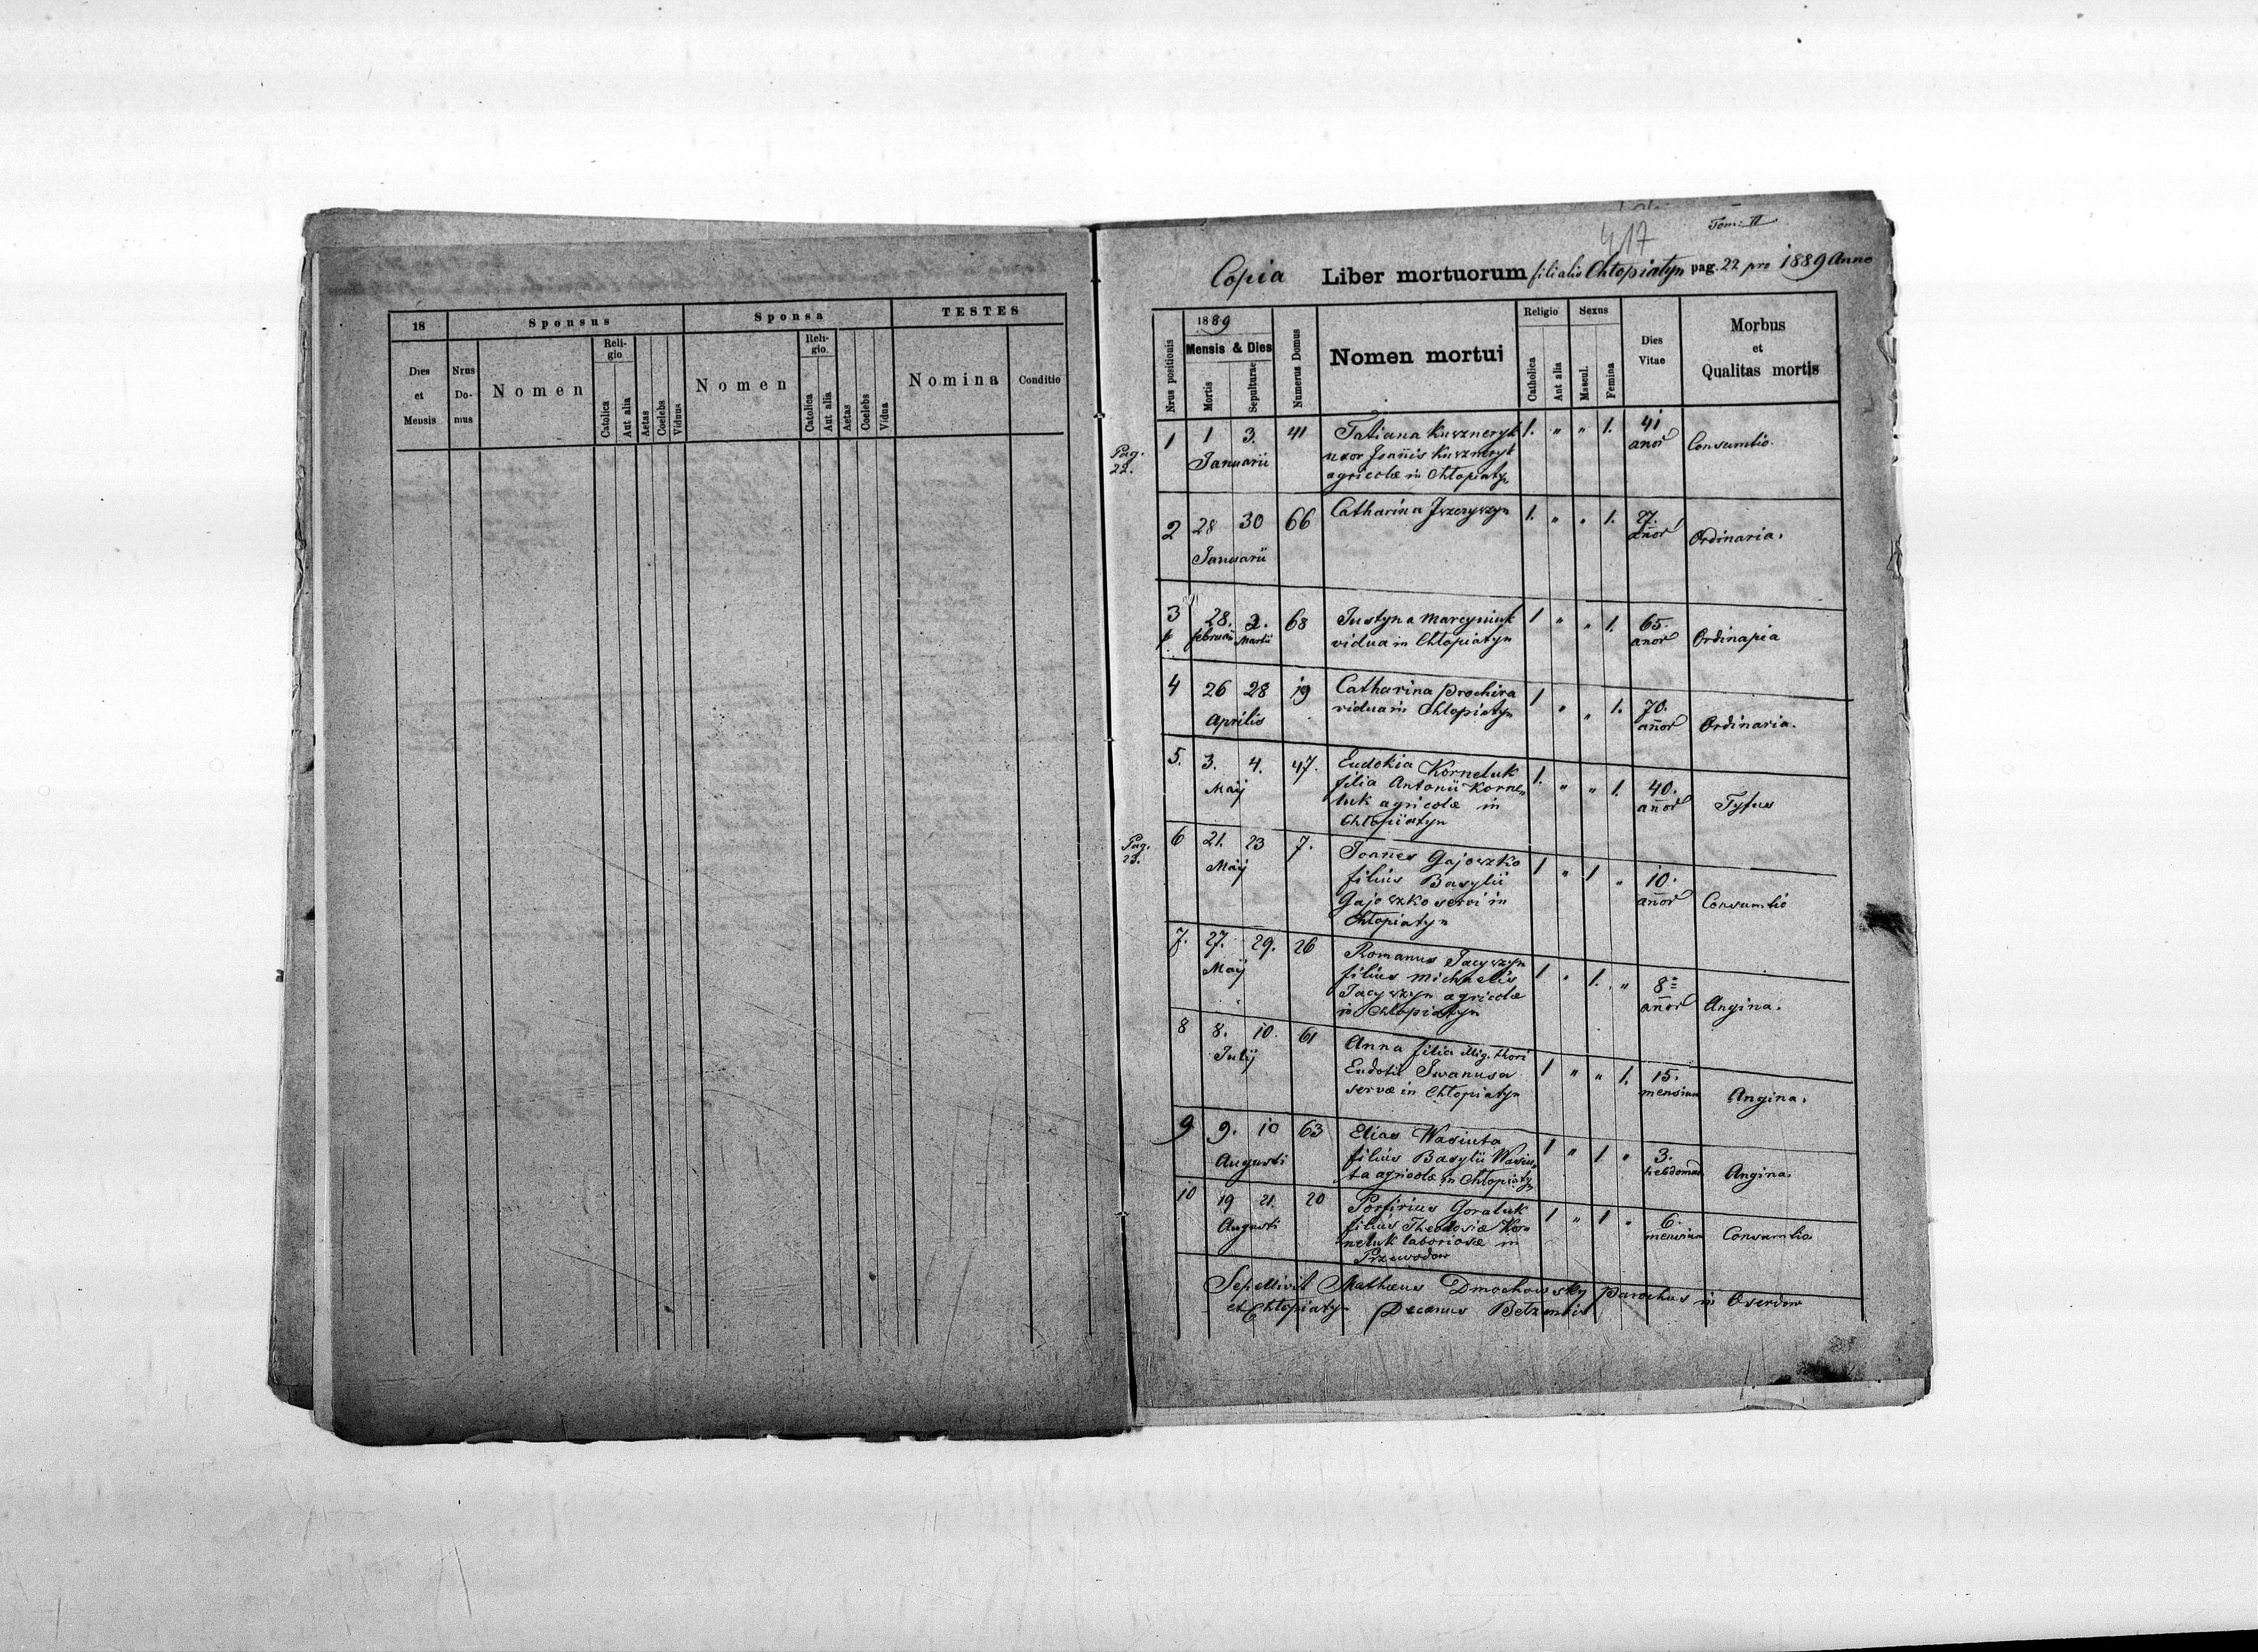 18
Sponsus
Sponsa
TESTES
Dies et Mensis
Nrus Do-mus
Nomen
Reli-gio
Catolica
Aut alia
Aetas
Coelebs
Viduus
Nomen
Reli-gio
Catolica
Aut alia
Aetas
Coelebs
Vidua
Nomina
Conditio
Tom: II
417
Copia Liber mortuorum filialis Chłopiatyn pag. 22 pro 1889 Anno
Nrus positionis
1889
Mensis & Dies
Mortis
Sepulturae
Numerus Domus
Nomen mortui
Religio
Catholica
Aut alia
Sexus
Mascul.
Femina
Dies Vitae
Morbus
et
Qualitas mortis
Pag. 22.
1 1 3. 41 Tatiana 1. " " 1. 41
Januarii uxor Joannis anor Consumtio
agricolæ in Chłopiatyn
2 28 30 66 Catharina 1. " " 1. 77.
Januarii anor Ordinaria.
3 28. 2. 68 Justyna Marcyniuk 1 " " 1. 65.
februarii Martii vidua in Chłopiatyn anor Ordinaria
4 26 28 19 Catharina Prochira 1 " " 1. 70.
Aprilis vidua in Chłopiatyn anor Ordinaria.
5. 3. 4. 47. Eudokia Korneluk 1. " " 1. 40.
Maij filia Antonii Korne„ anor Tyfus
luk agricolæ in
Chłopiatyn
Pag. 23.
6 21. 23 7. Joannes Gajowzko 1 " 1 " 10.
Maij filius Basylii anor Consumtio
Gajowzko servi in
Chłopiatyn
7. 27. 29. 26 Romanus Jacyszyn 1 " 1. " 8
Maij filius Michaelis anor Angina.
Jacyszyn agricolæ
in Chłopiatyn
8 8. 10. 61 Anna filia illig. thori 1 " " 1. 15.
Julij Iwanusa mensium Angina.
servæ in Chłopiatyn
9 9. 10 63 Elias Wasiuta 1 " 1 " 3.
Augusti filius Basylii Wasiu„ hebdomad Angina.
ta agricolæ in Chłopiatyn
10 19 21. 20 Porfirius Goraluk 1 " 1 " 6.
Augusti filius Theodosiæ Kor„ mensium Consumtio
neluk laboriosæ in
Przewodow
Sepellivit Mathæus Dmochowsky Parochus in Oserdow
et Chłopiatyn Decanus Belzensis